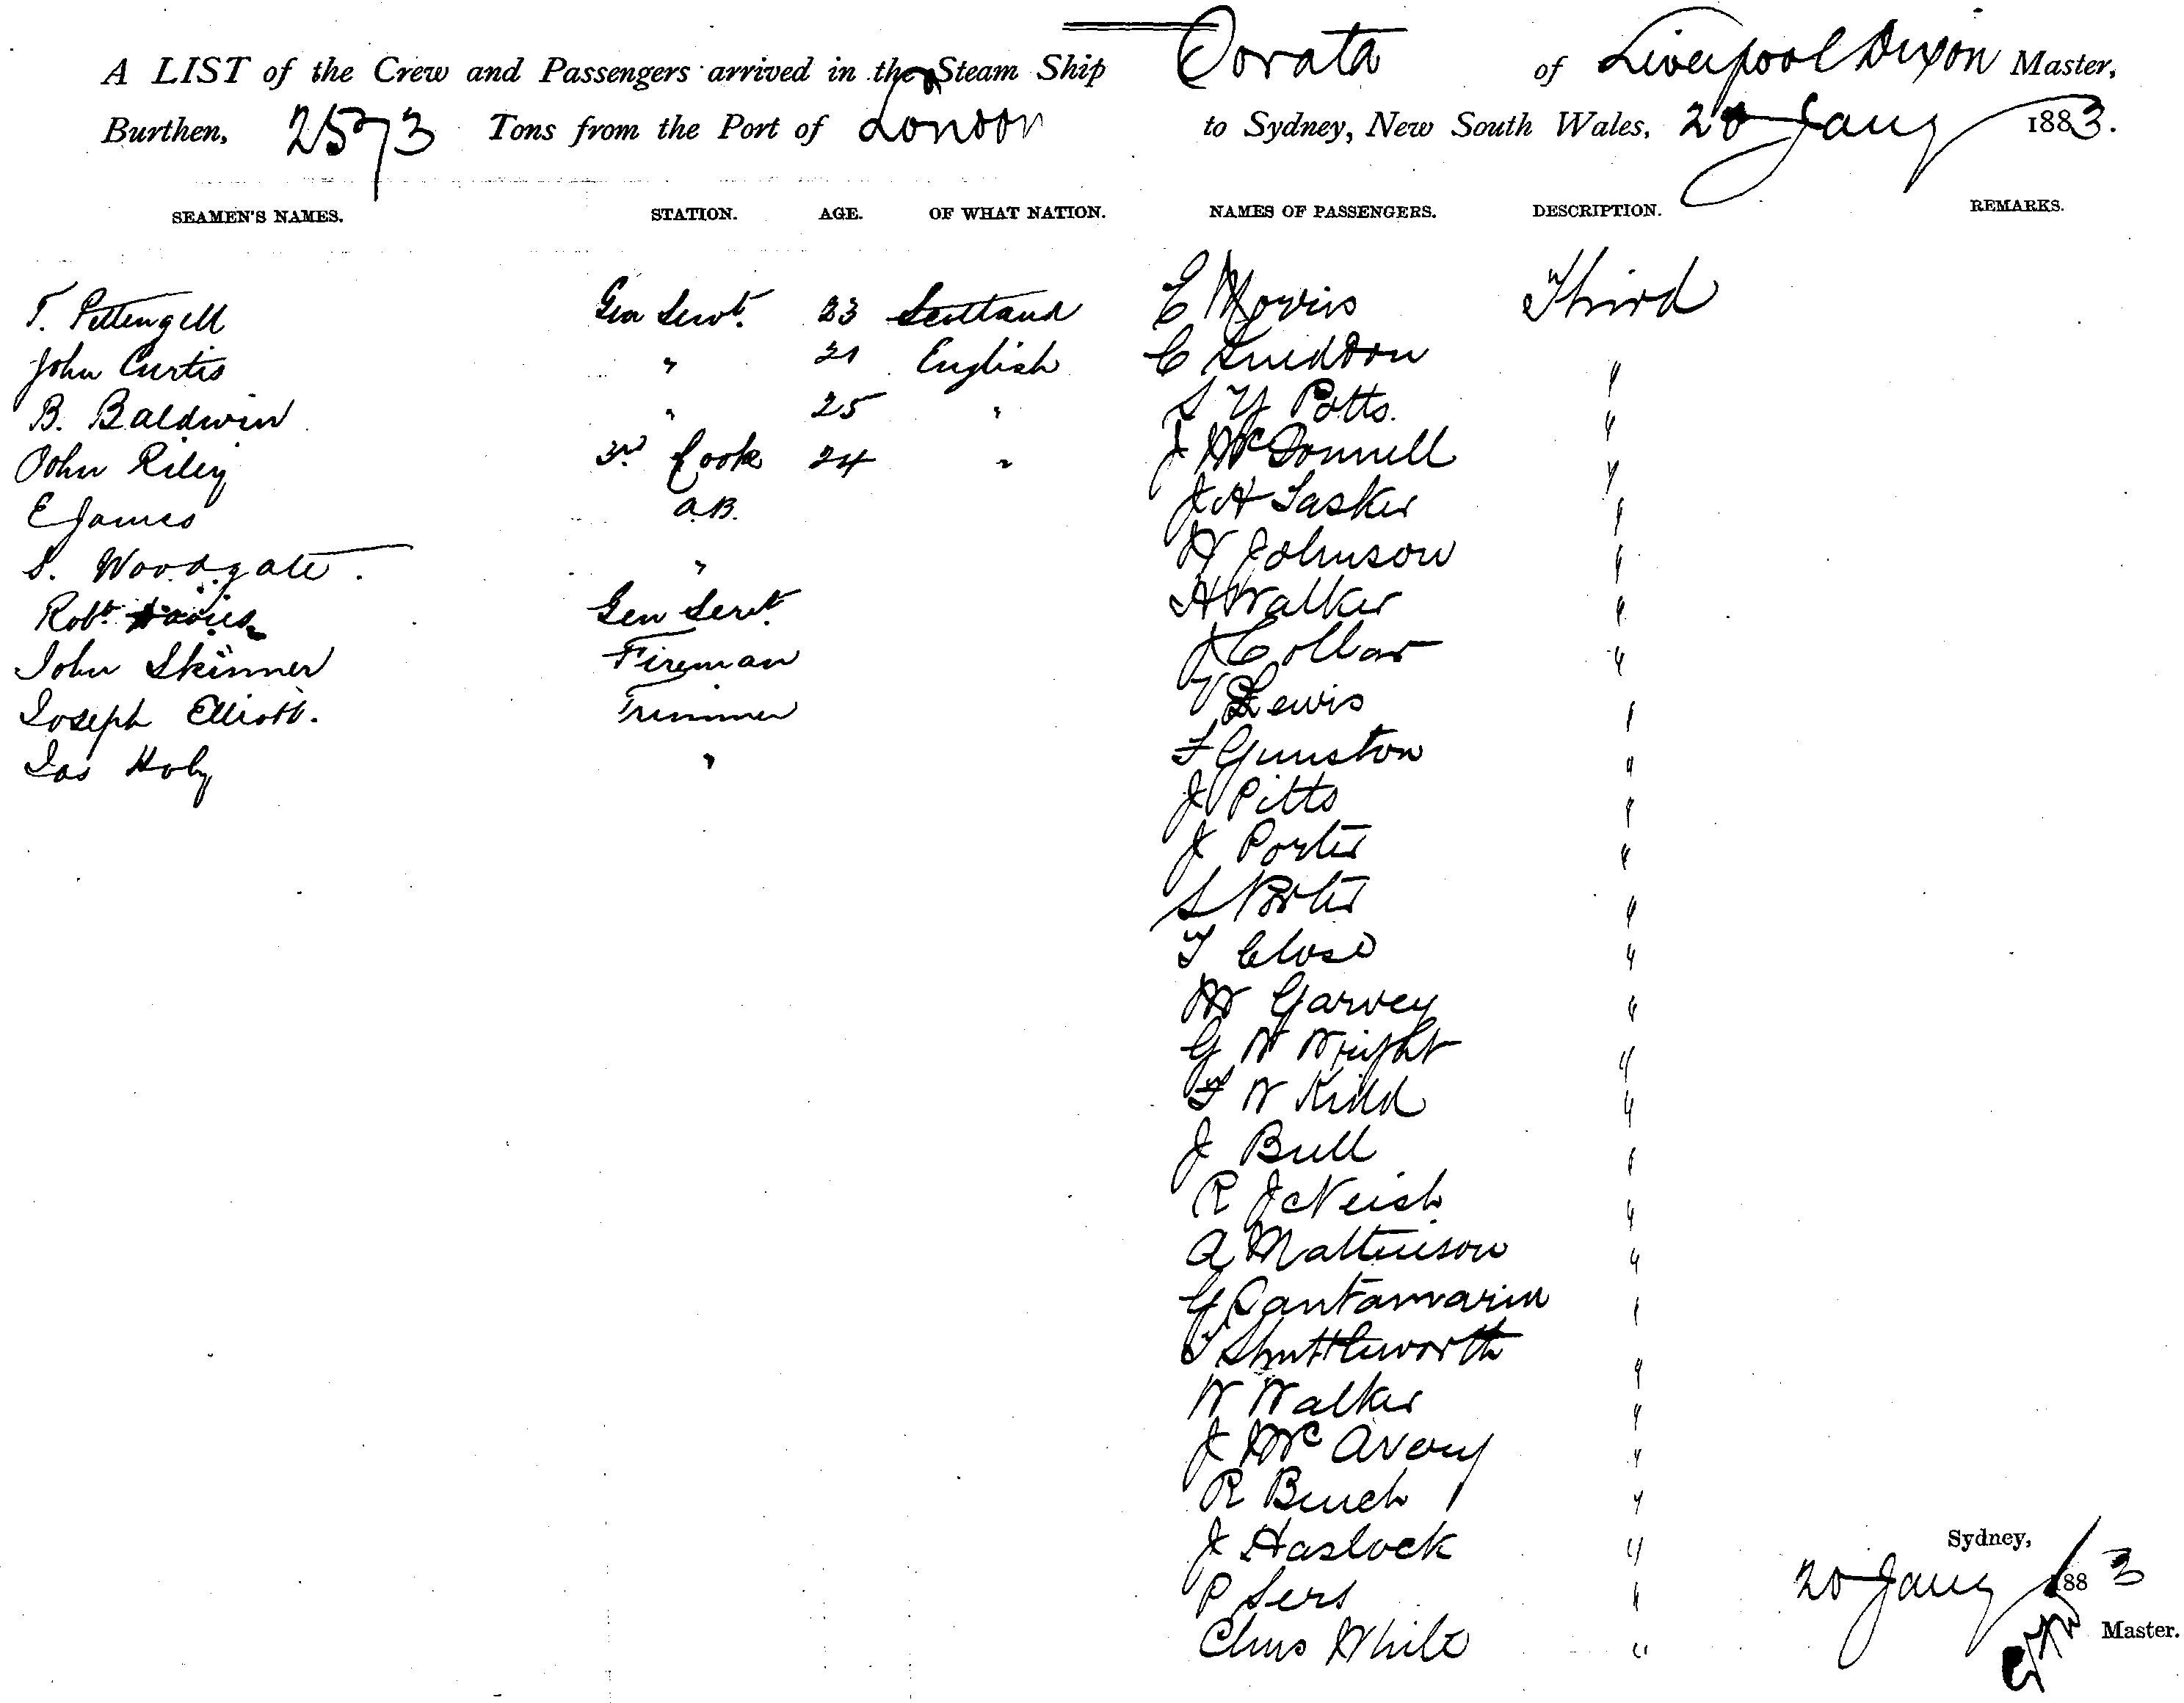 A LIST of the Crew and Passengers arrived in the Steam Ship Sorata of Liverpool Dixon Master,
Burthen, 2573 Tons from the Port of London to Sydney, New South Wales, 20 Jany 1883.
SEAMEN'S NAMES. STATION. AGE. OF WHAT NATION. NAMES OF PASSENGERS. DESCRIPTION. REMARKS.
T. Pettengell Gen Servt. 23 Scotland E Morris Third
John Curtis " 21 English C "
B. Baldwin " 25 " S Y Potts "
John Riley 3rd Cook 24 " J McDonnell "
E James A.B. J H Tasker "
S. Woodgate. " H Johnson "
Robt Davies Gen Servt. H Walker "
John Skinner Fireman J Collar "
Joseph Elliott. Trimmer Lewis "
Jas Hoby " F Gunston "
J Pitts "
J Porter "
S Porter "
T Close "
W Garvey "
G W Wright "
F W Kidd "
J Bull "
R J Neish "
A Mathieson "
G Santamarin "
T Shuttleworth "
W Walker "
J McAvoy "
R Bunch "
J Haslock "
P Sers "
Chas White "
Sydney,
20 Jany 1883
Master.